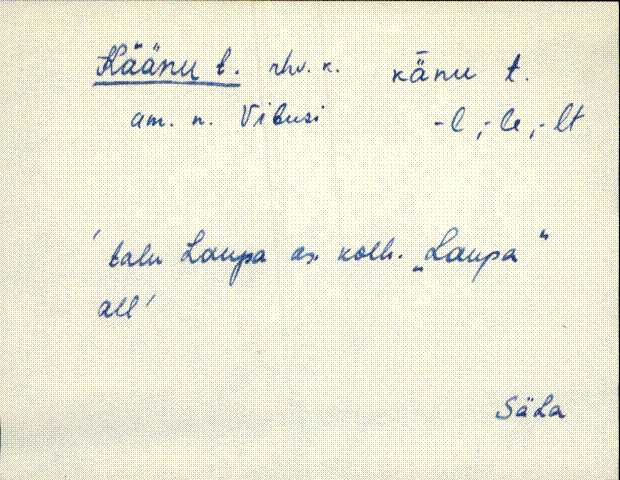 Käänu t. rhv. k. kānu t.
am. n. Vibusi -l, -le, -lt
'talu Laupa as. kolh. „Laupa"
all'
SäLa